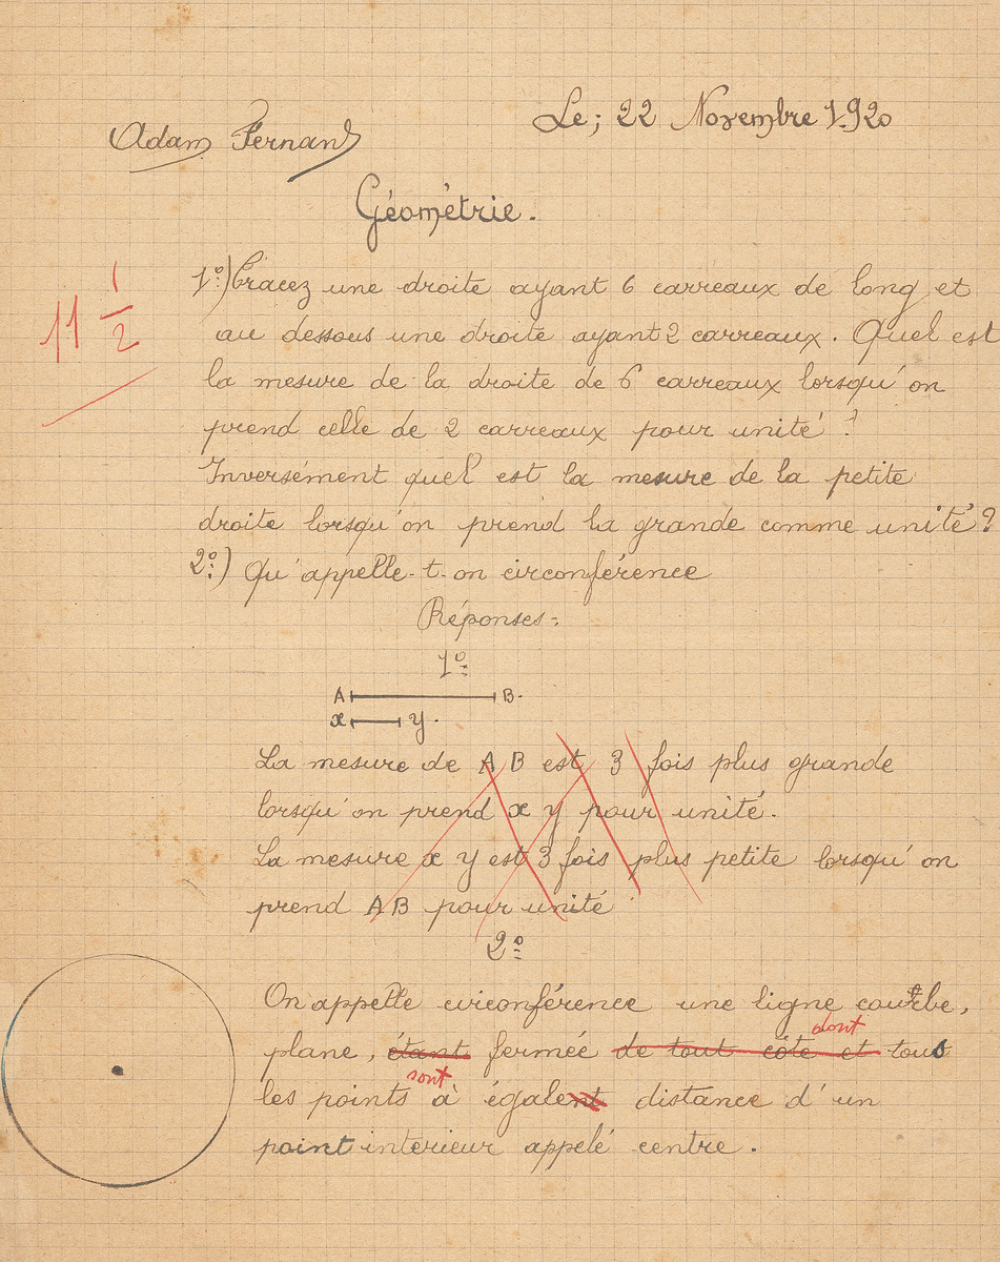 Le; 22 Novembre 1920
Adam Fernand
Géométrie.
11 1/2
1º) Tracez une droite ayant 6 carreaux de long et
au dessous une droite ayant 2 carreaux. Quel est
la mesure de la droite de 6 carreaux lorsqu'on
prend celle de 2 carreaux pour unité ?
Inversément quel est la mesure de la petite
droite lorsqu'on prend la grande comme unité ?
2º) Qu'appelle-t-on circonférence
Réponses:
1º
A B.
x y.
La mesure de A B est 3 fois plus grande
lorsqu'on prend x y pour unité.
La mesure x y est 3 fois plus petite lorsqu'on
prend AB pour unité
2º
On appelle circonférence une ligne courbe,
dont
plane, étant fermée de tout côte et tous
sont
les points à égalent distance d'un
point intérieur appelé centre.